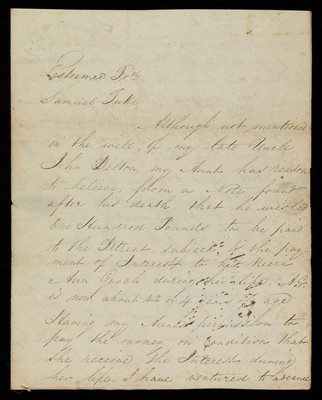 Esteemed Frd
Samuel Tuke
Although not mentioned
in the will of my late Uncle
John Tolson, my Aunt has reason
to believe, from a Note found
after his death that he wished
One Hundred Pounds to be paid
to the Retreat subject to the pay
ment of Interest to his Niece
Ann Gooch during her life. Ann
is now about 42 or 4 years of age
Having my Aunts permission to
pay the money on condition that
she receive the Interest during
her life, I have ventured to advance